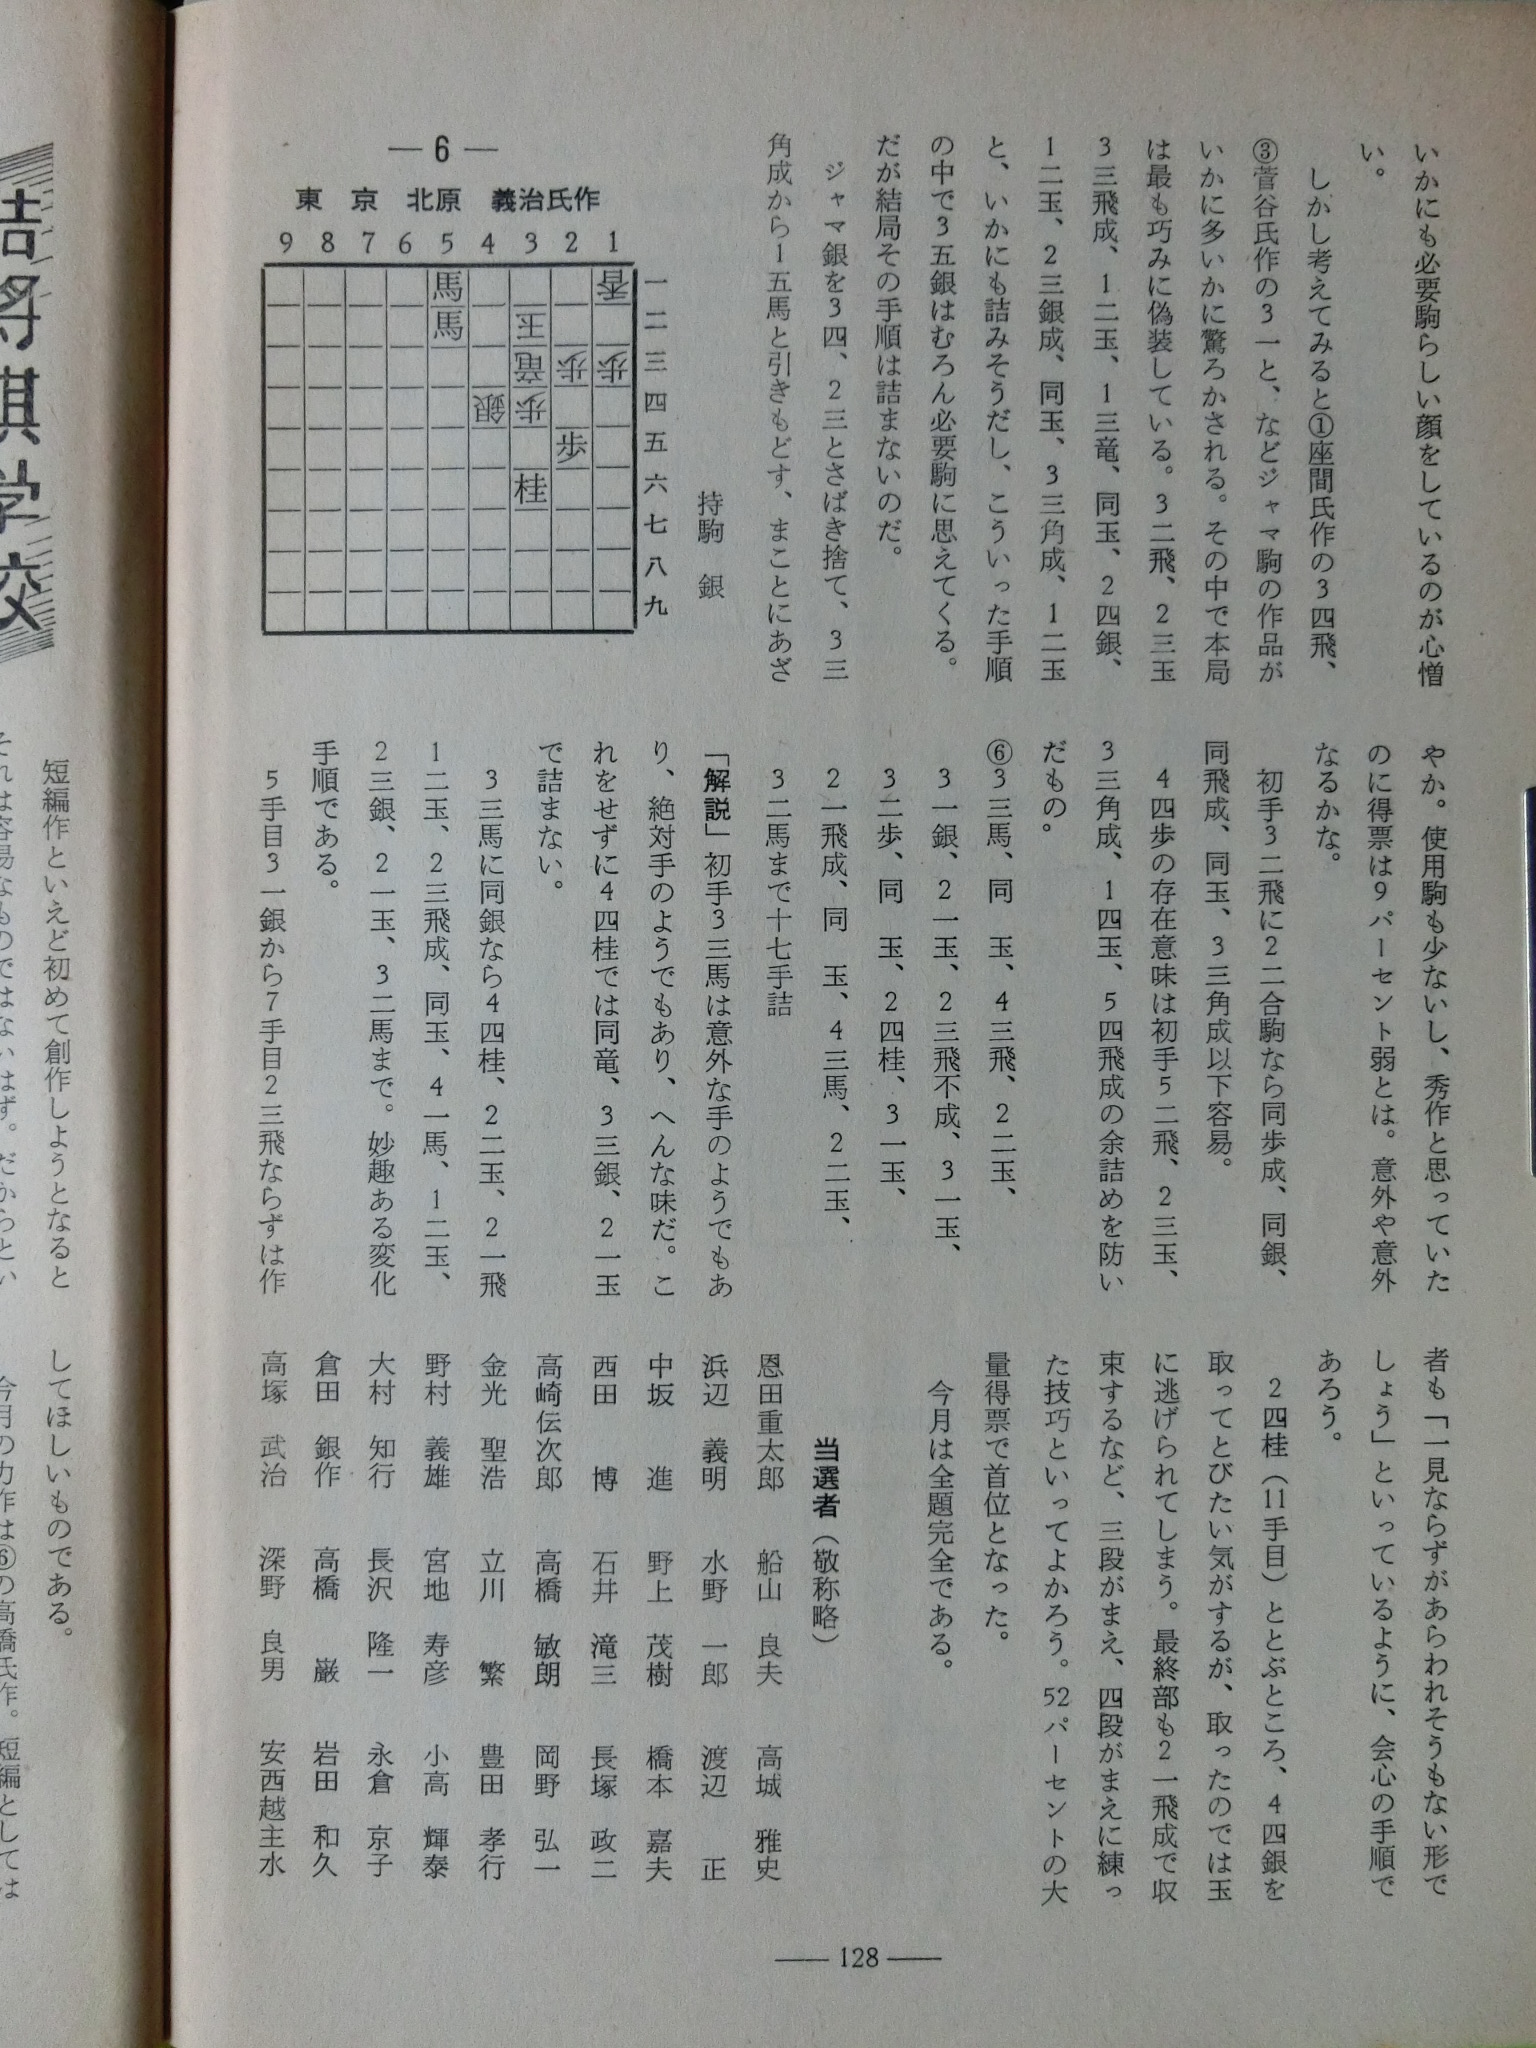 いかにも必要駒らしい顔をしているのが心憎
い。
しかし考えてみると①座間氏作の3四飛、
③菅谷氏作の3一と、などジャマ駒の作品が
いかに多いかに驚ろかされる。その中で本局
は最も巧みに偽装している。3二飛、2三玉
3三飛成、1二玉、1三竜、同玉、2四銀、
1二玉、2三銀成、同玉、3三角成、1二玉
と、いかにも詰みそうだし、こういった手順
の中で3五銀はむろん必要駒に思えてくる。
だが結局その手順は詰まないのだ。
ジャマ銀を3四、2三とさばき捨て、3三
角成から1五馬と引きもどす、まことにあざ
―6―
東京 北原 義治氏作
9 8 7 6 5 4 3 2 1
馬 香 一
馬 玉 二
竜 歩 歩 三
銀 歩 四
歩 五
桂 六
七
八
九
持駒 銀
やか。使用駒も少ないし、秀作と思っていた
のに得票は9パーセント弱とは。意外や意外
なるかな。
初手3二飛に2二合駒なら同歩成、同銀、
同飛成、同玉、3三角成以下容易。
4四歩の存在意味は初手5二飛、2三玉、
3三角成、1四玉、5四飛成の余詰めを防い
だもの。
⑥3三馬、同 玉、4三飛、2二玉、
3一銀、2一玉、2三飛不成、3一玉、
3二歩、同 玉、2四桂、3一玉、
2一飛成、同 玉、4三馬、2二玉、
3二馬まで十七手詰
「解説」初手3三馬は意外な手のようでもあ
り、絶対手のようでもあり、へんな味だ。こ
れをせずに4四桂では同竜、3三銀、2一玉
で詰まない。
3三馬に同銀なら4四桂、2二玉、2一飛
1二玉、2三飛成、同玉、4一馬、1二玉、
2三銀、2一玉、3二馬まで。妙趣ある変化
手順である。
5手目3一銀から7手目2三飛ならずは作
者も「一見ならずがあらわれそうもない形で
しょう」といっているように、会心の手順で
あろう。
2四桂（11手目）ととぶところ、4四銀を
取ってとびたい気がするが、取ったのでは玉
に逃げられてしまう。最終部も2一飛成で収
束するなど、三段がまえ、四段がまえに練っ
た技巧といってよかろう。52パーセントの大
量得票で首位となった。
今月は全題完全である。
当選者（敬称略）
恩田重太郎 船山 良夫 高城 雅史
浜辺 義明 水野 一郎 渡辺 正
中坂 進 野上 茂樹 橋本 嘉夫
西田 博 石井 滝三 長塚 政二
高崎伝次郎 高橋 敏朗 岡野 弘一
金光 聖浩 立川 繁 豊田 孝行
野村 義雄 宮地 寿彦 小高 輝泰
大村 知行 長沢 隆一 永倉 京子
倉田 銀作 高橋 巌 岩田 和久
高塚 武治 深野 良男 安西越主水
―128―
詰将棋学校
短編作といえど初めて創作しようとなると
それは容易なものではないはず。だからとい
してほしいものである。
今月の力作は⑥の高橋氏作。短編としては